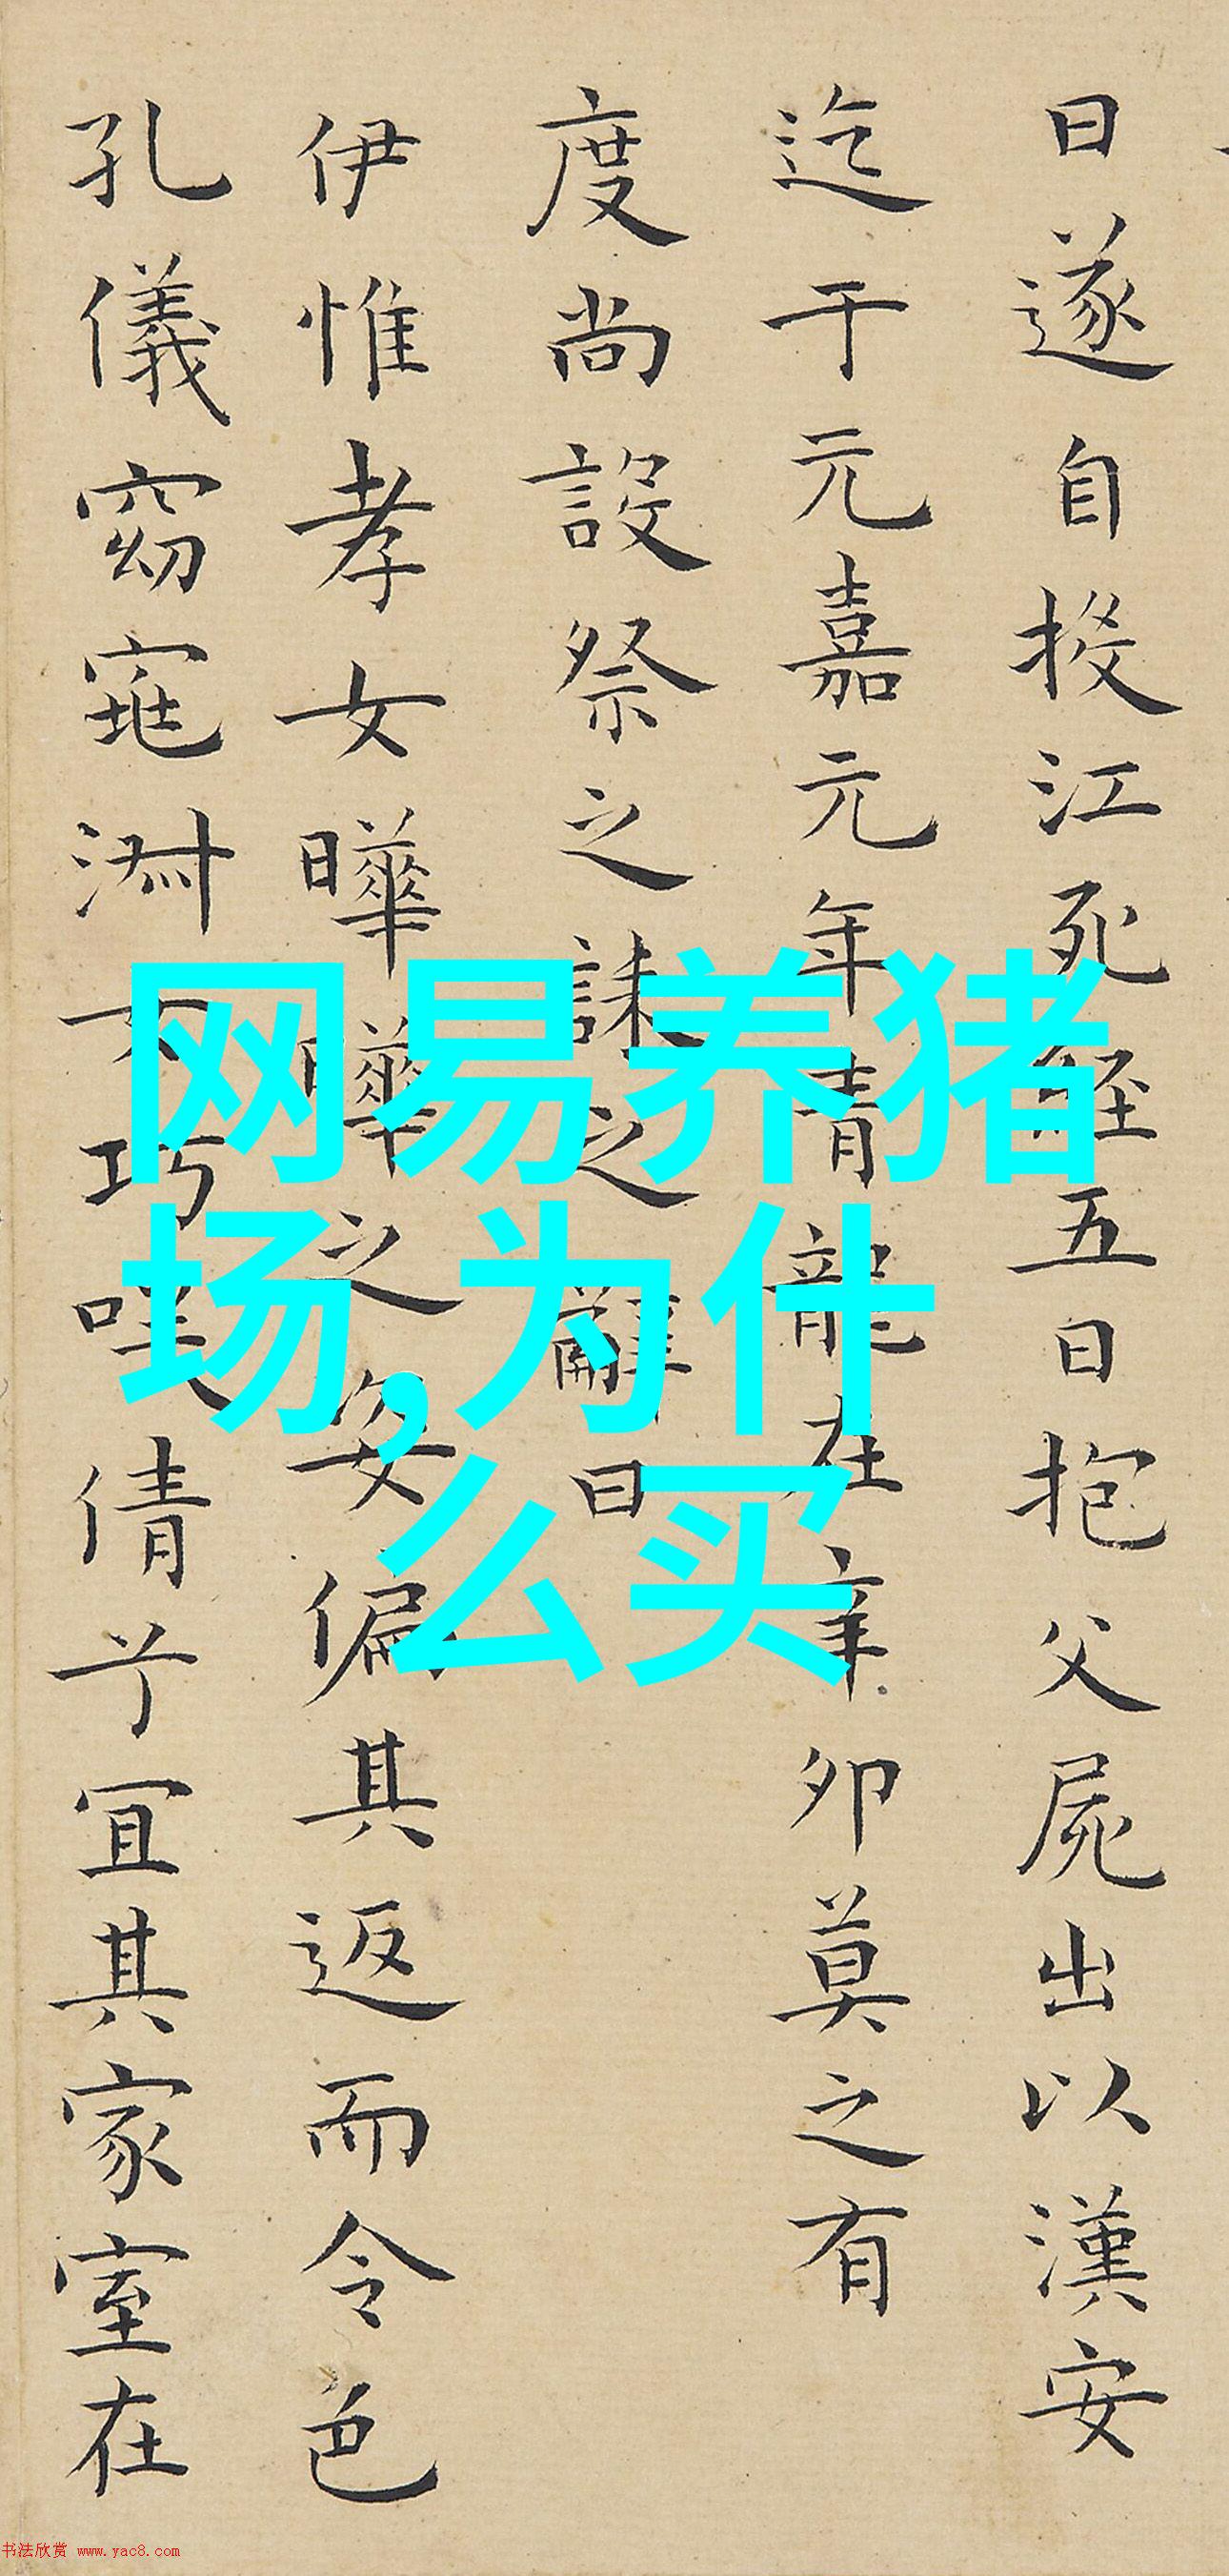 曰遂自投江死經五日抱父屍出以漢安
迄于元嘉元年青龍在辛卯莫之有
度尚設祭之誄之辭曰
伊惟孝女曄曄之姿偏其返而令色
孔儀窈窕淑女巧咲倩兮宜其家室在
网易养猪
场,为什
么买
书法欣赏 www.yac8.com